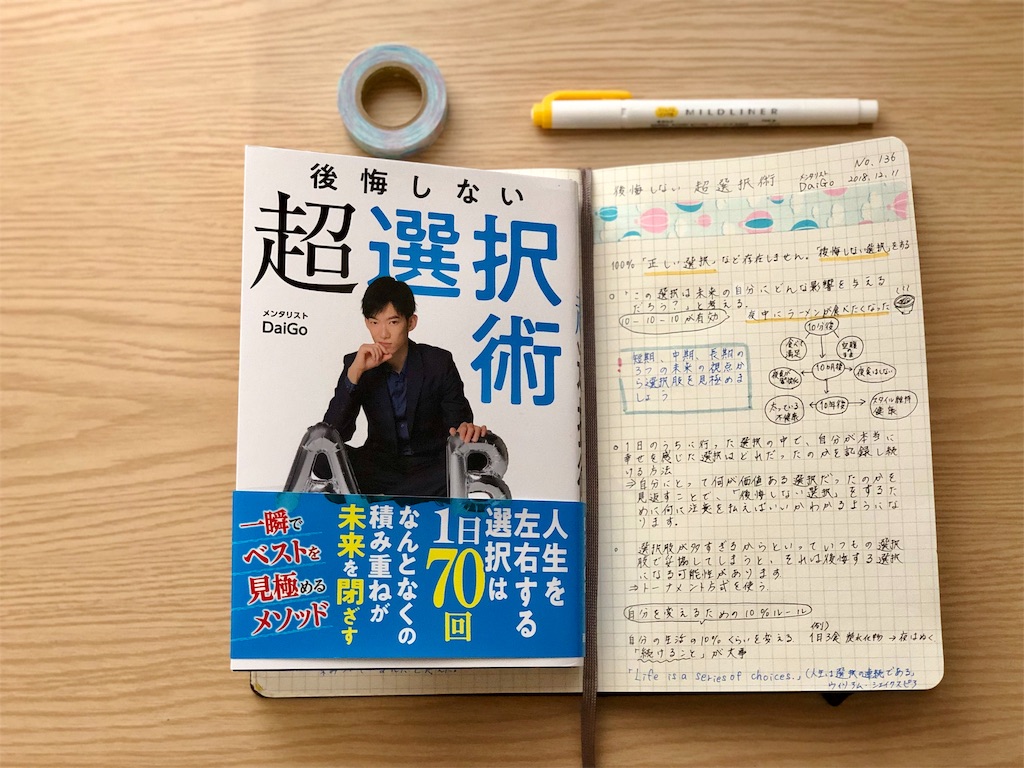 後悔しない
超選択術
メンタリスト
DaiGo
A B
人生を
左右する
選択は
1日
70回
なんとなくの
積み重ねが
未来を閉ざす
一瞬で
ベストを
見極める
メソッド
MILDLINER
No. 136
後悔しない 超選択術
メンタリスト
DaiGo
2018.12.11
100%「正しい選択」など存在しません。「後悔しない選択」をする
「この選択は未来の自分にどんな影響を与える
だろう?」と考える。
10-10-10が有効
夜中にラーメンが食べたくなった
短期、中期、長期の
3つの未来の視点か
ら選択肢を見極めま
しょう
10分後
食べて
満足
空腹
まま
10ヵ月後
夜食はしない
太っている
不健康
10年後
スタイル維持
健康
1日のうちに行った選択の中で、自分が本当に
幸せを感じた選択はどれだったのかを記録し続
ける方法
⇒自分にとって何が価値ある選択だったのかを
見返すことで、「後悔しない選択」をするた
めに何に注意を払えばいいかわかるようにな
ります。
選択肢が多すぎるからといっていつもの選択
肢で妥協してしまうと、それは後悔する選択
になる可能性があります
⇒トーナメント方式を使う
自分を変えるための10%ルール
自分の生活の10%くらいを変える
例)
1日3食 炭水化物→夜はぬく
「続けること」が大事
「Life is a series of choices.」(人生は選択の連続である」
ウィリアム・シェイクスピア